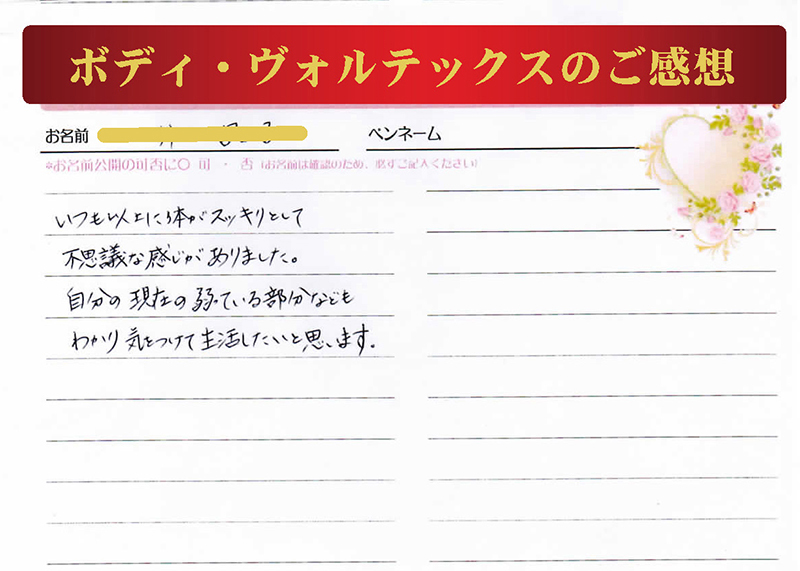 ボディ・ヴォルテックスのご感想
お名前
ペンネーム
*お名前公開の可否に○ 可 ・ 否 (お名前は確認のため、必ずご記入ください)
いつも以上に体がスッキリとして
不思議な感じがありました。
自分の現在の弱っている部分なども
わかり気をつけて生活したいと思います。